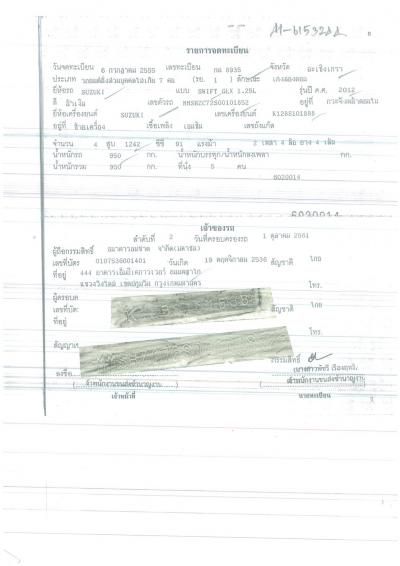 รายการจดทะเบียน
วันจดทะเบียน 6 กรกฎาคม 2555 เลขทะเบียน กต 8935 จังหวัด ฉะเชิงเทรา
ประเภท รถยนต์นั่งส่วนบุคคลไม่เกิน 7 คน (รย. 1) ลักษณะ เก๋งสองตอน
ยี่ห้อรถ SUZUKI แบบ SWIFT GLX 1.25L รุ่นปี ค.ศ. 2012
สี น้ำเงิน เลขตัวรถ อยู่ที่
ยี่ห้อเครื่องยนต์ SUZUKI เลขเครื่องยนต์
อยู่ที่ ซ้ายเครื่อง เชื้อเพลิง เบนซิน เลขถังแก๊ส
จำนวน 4 สูบ 1242 ซีซี 91 แรงม้า 2 เพลา 4 ล้อ ยาง 4 เส้น
น้ำหนักรถ 950 กก. น้ำหนักบรรทุก/น้ำหนักลงเพลา กก.
น้ำหนักรวม 950 กก. ที่นั่ง 5 คน
6020014
6020014
เจ้าของรถ
ลำดับที่ 2 วันที่ครอบครองรถ 1 ตุลาคม 2561
ผู้ถือกรรมสิทธิ์ ธนาคารธนชาต จำกัด(มหาชน)
เลขที่บัตร 0107536001401 วันเกิด 19 พฤศจิกายน 2536 สัญชาติ ไทย
ที่อยู่ 444 อาคารเอ็มบีเคทาวเวอร์ ถนนพญาไท
แขวงวังใหม่ เขตปทุมวัน กรุงเทพมหานคร โทร.
ผู้ครอบค
เลขที่บัตร สัญชาติ ไทย
ที่อยู่
โทร.
สัญญาเช
กรรมสิทธิ์
ลงชื่อ
เจ้าพนักงานขนส่งชำนาญงาน เจ้าพนักงานขนส่งชำนาญงาน
เจ้าหน้าที่ นายทะเบียน